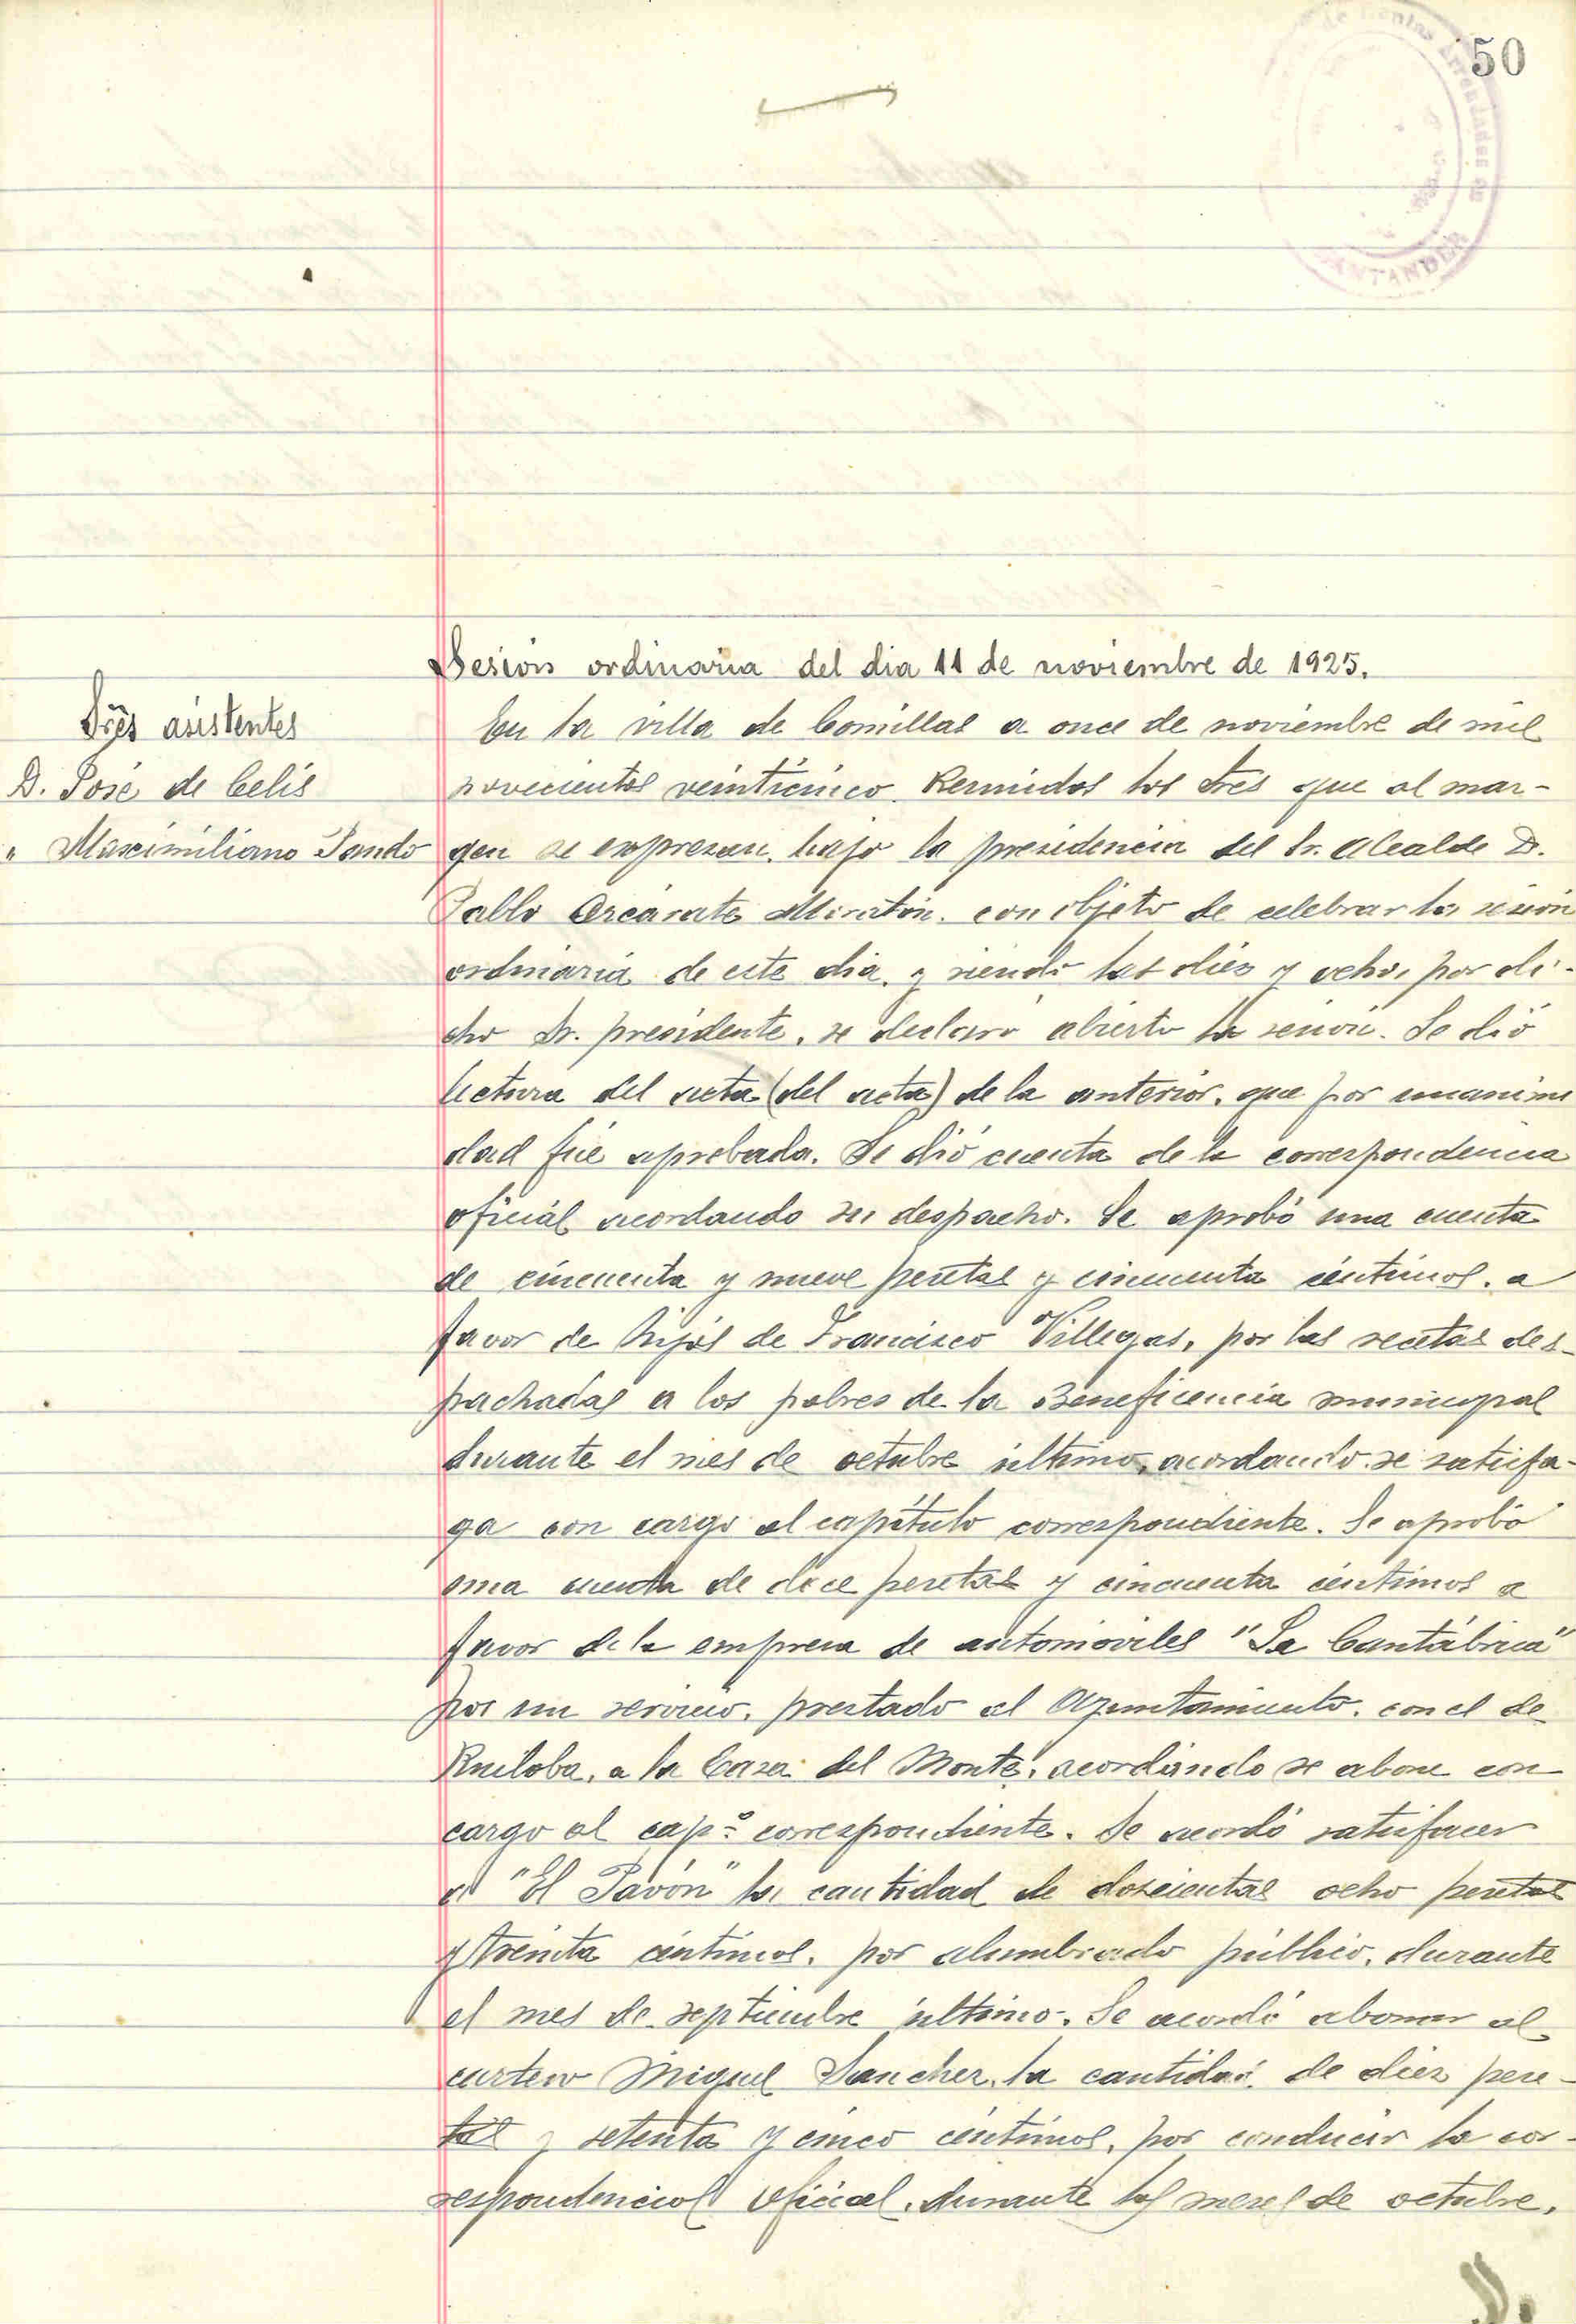 50
SANTANDER
Sesión ordinaria del dia 11 de noviembre de 1925.
Srēs asistentes
D. José de Celis
" Maximiliano Pando
En la villa de Comillas a once de noviembre de mil
novecientos veinticinco. Reunidos los Sres que al mar-
gen se expresan, bajo la presidencia del Sr. Alcalde D.
Pablo con objeto de celebrar la sesión
ordinaria de este dia, y siendo las diez y ocho, por di-
cho Sr. presidente, se declaró abierta la sesión. Se dió
lectura del acta (del acta) de la anterior, que por unanimi
dad fué aprobada. Se dió cuenta de la correspondencia
oficial acordando su despacho. Se aprobó una cuenta
de cincuenta y nueve pesetas y cincuenta céntimos, a
favor de hijos de Francisco Villegas, por las recetas des-
pachadas a los pobres de la Beneficencia municipal
durante el mes de octubre último, acordando se satisfa-
ga con cargo al capítulo correspondiente. Se aprobó
una cuenta de doce pesetas y cincuenta céntimos a
favor de la empresa de automóviles "La Cantábrica"
por un servicio, prestado al Ayuntamiento, con el de
Ruiloba, a la Casa del Monte, acordándo se abone con
cargo al cap.º correspondiente. Se acordó satisfacer
a "El Pavón" la cantidad de doscientas ocho pesetas
y treinta céntimos, por alumbrado público, durante
el mes de septiembre último. Se acordó abonar al
cartero Miguel Sanchez, la cantidad de diez pese-
tas y setenta y cinco céntimos, por conducir la cor-
respondencia oficial, durante los meses de octubre,